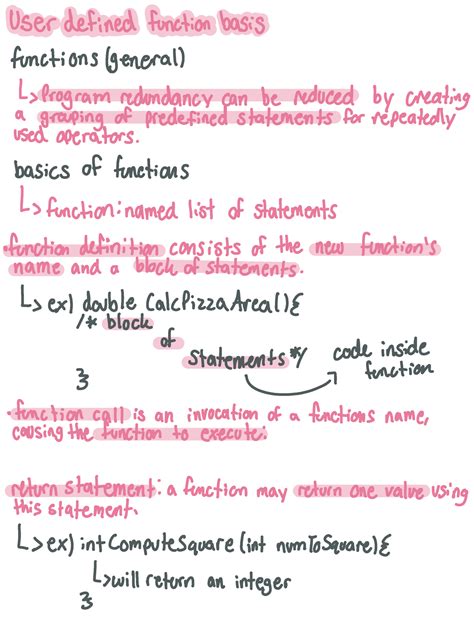 User defined function basis
functions (general)
↳ Program redundancy can be reduced by creating
a grouping of predefined statements for repeatedly
used operators.
basics of functions
↳ function: named list of statements
·function definition consists of the new function's
name and a block of statements.
↳ ex) double CalcPizzaArea(){
/* block
of
Statements */
code inside
function
}
·function call is an invocation of a functions name,
causing the function to execute:
return statement: a function may return one value using
this statement.
↳ ex) int ComputeSquare (int numToSquare){
↳ will return an integer
}